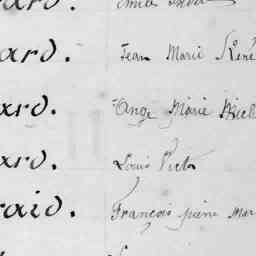 ard.
ard. Jean Marie René
ard. Ange Marie Mich
ard. Louis Victor
raid. François pierre Mar